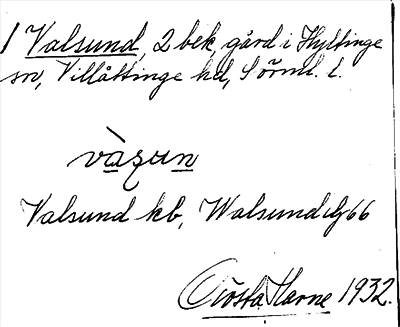 1 Valsund, 2 bek, gård i Hyltinge
sn, Villåttinge hd, Sörml. l.
vàzun
Valsund kb, Walsund dg 66
Gösta Harne 1932.